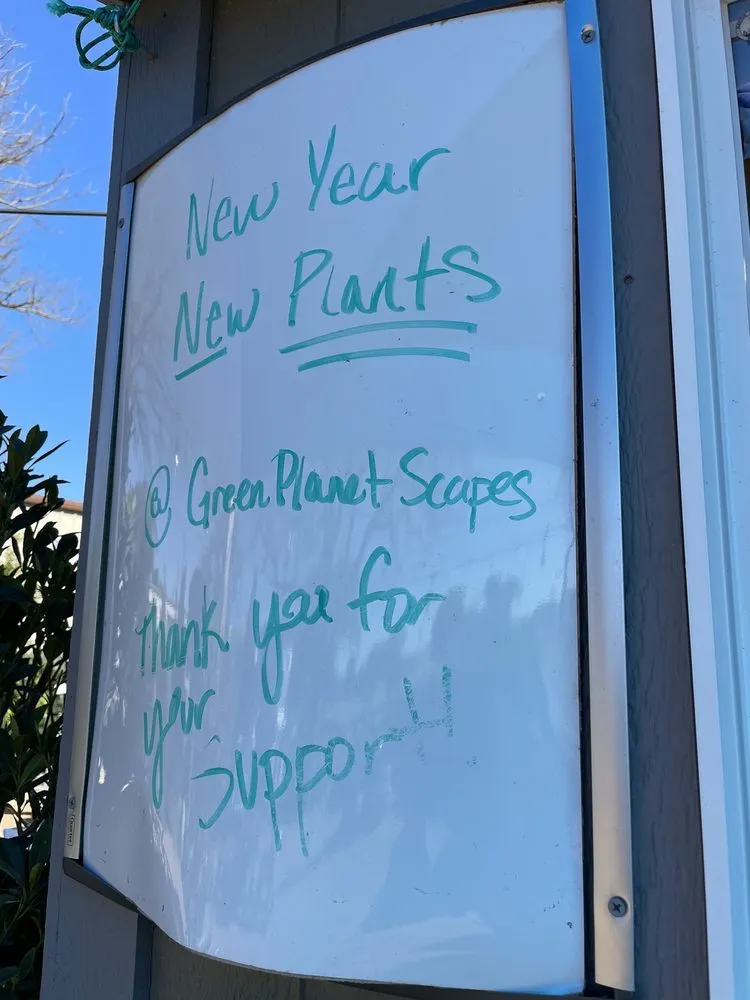 New Year
New Plants
@ GreenPlanet Scapes
Thank you for
your
Support!